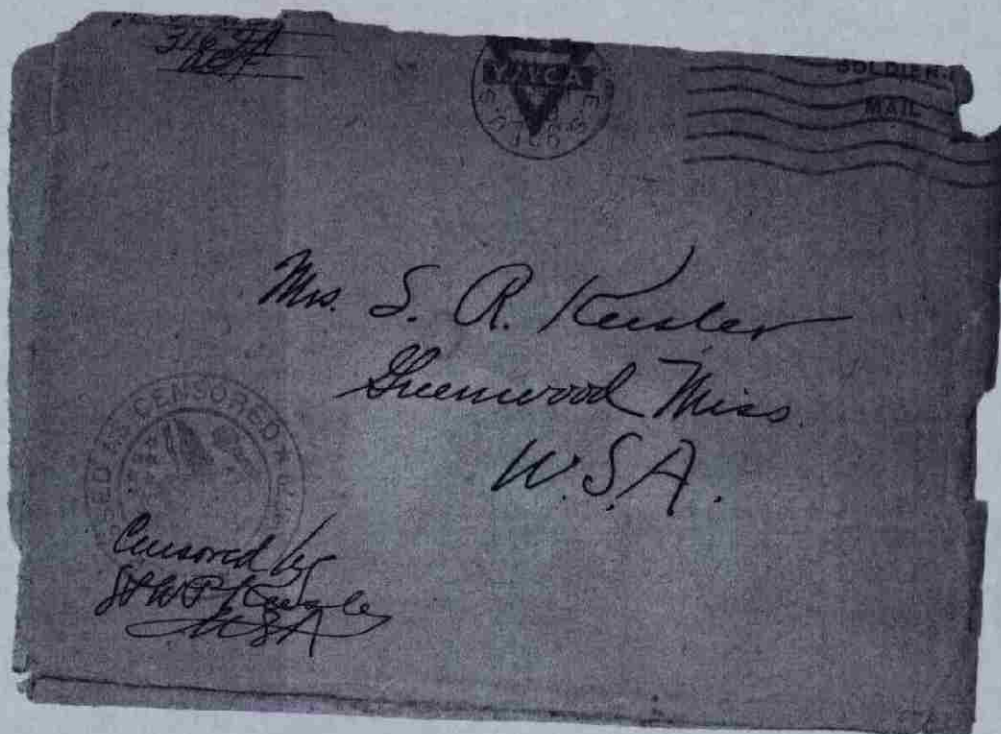 316 FA
A.E.F.
Y.M.C.A
SOLDIER
MAIL
Mrs. S. R. Keesler
Greenwood Miss.
U.S.A.
CENSORED
Censored by
USA